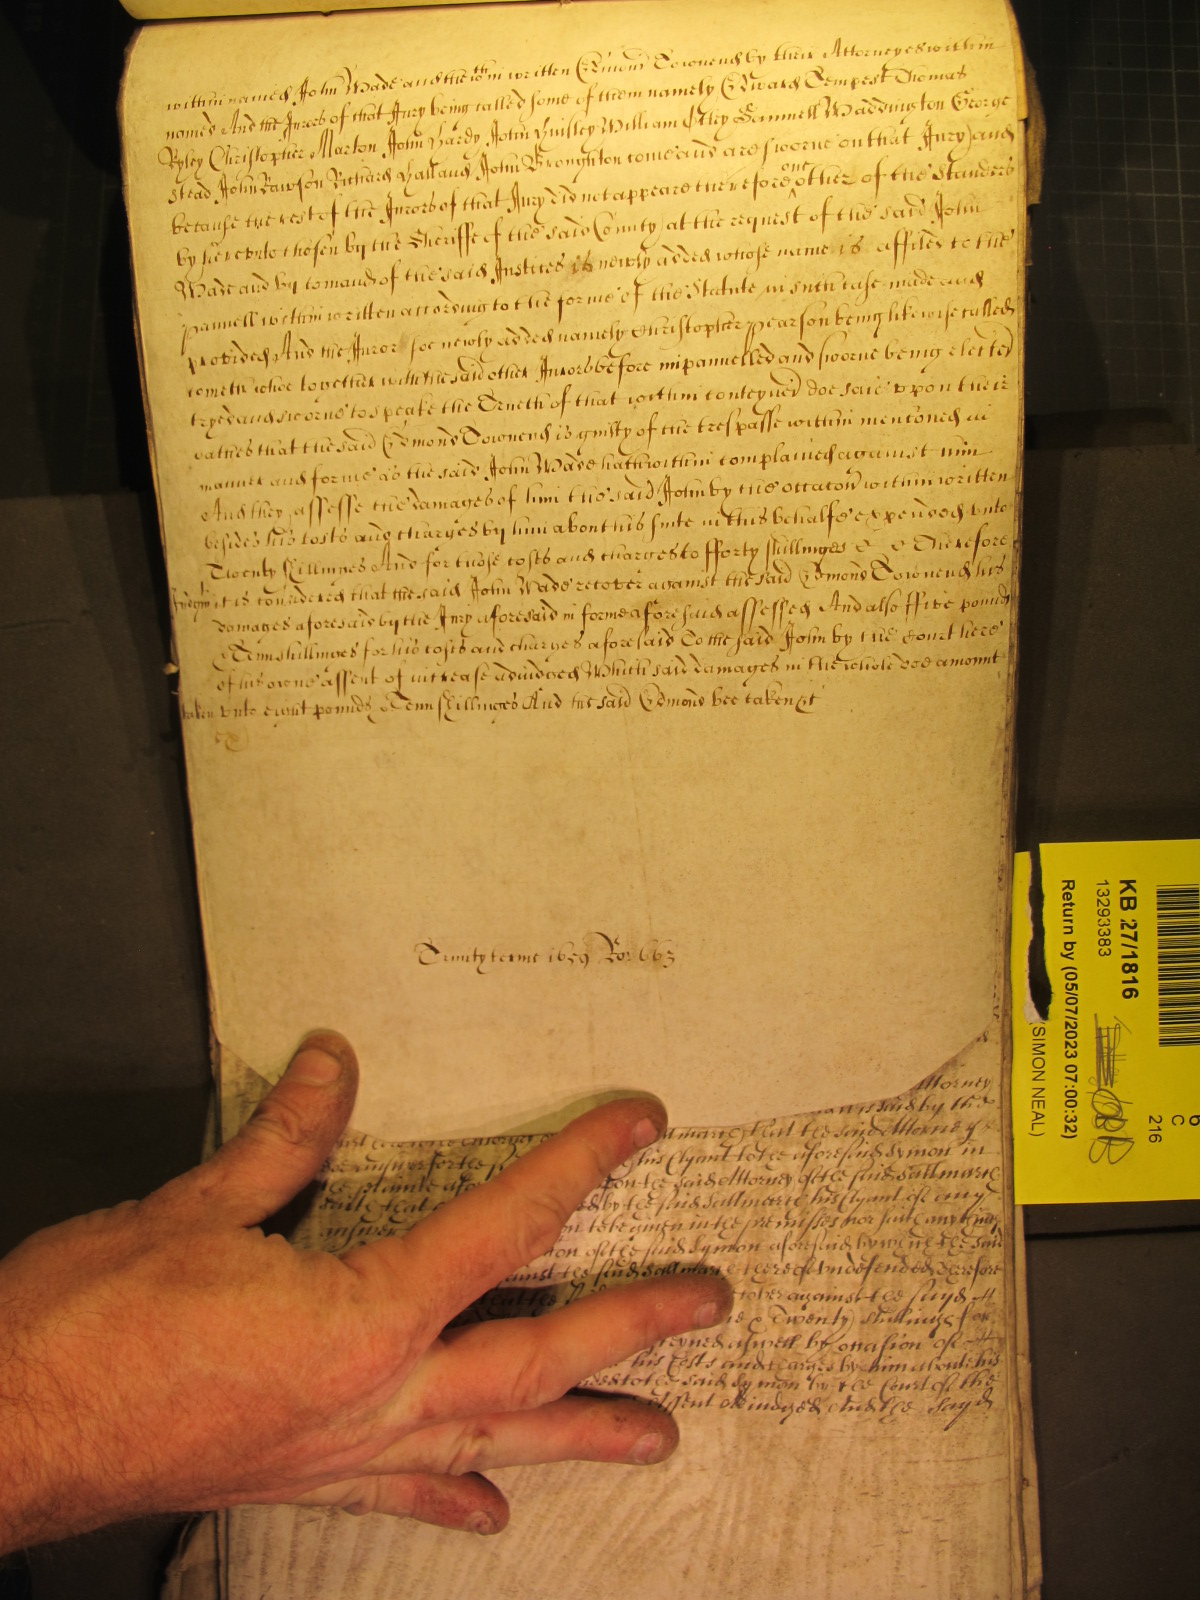 within named John Wade and the wthin written Edmond Townend by their Attorneyes within
named And the Jurors of that Jury being called some of them namely Edward Tempest Thomas
Ryley Christopher Marton John Hardy John William Otley Samuell Waddington George
Stead John Rawson Richard John Broughton come and are sworne on that Jury) and
because the rest of the Jurors of that Jury did not appeare therefore one other of the Standers
by hereunto chosen by the Sheriffe of the said County) at the request of the said John
Wade and by comand of the said Justices is newly added whose name is affiled to the
pannell within written according to the forme of the Statute in such case made and
provided And the Juror soe newly added namely Christopher Pearson being likewise called
cometh whoe together with the said other Jurors before impannelled and sworne being elected
tryed and sworne to speake the Trueth of that within conteyned doe saie uppon their
oathes that the said Edmond Townend is guilty of the trespasse within mentioned in
manner and forme as the said John Wade hath within complained against him
And they assesse the damages of him the said John by the occacon within written
besides his costs and charges by him about his suite in this behalfe expended unto
Twenty shillinges And for those costs and charges to fforty shillinges & & Therefore
it is considered that the said John Wade recover against the said Edmond Townend his
damages aforesaid by the Jury aforesaid in forme aforesaid assessed And also ffive pounds
& Tenn shillinges for his costs and charges aforesaid To the said John by the Court here
of his owne assent of increase adiudged Which said damages in the whole doe amount
taken unto eight pounds & Tenn shillinges And the said Edmond bee taken &t
Trinity terme 1659 Ro: 663
Attorney
is said by the
that the said Attorney
his Clyant to the aforesaid Symon in
the plainte upon the said Attorney of the said Sallmarie
saith that by the said Sallmarie his Clyant of any
answer to be given in the premisses nor saith anything
of the said Symon aforesaid by which the said
against the said Sallmarie thereof undefended Therefore
recover against the sayd
& Twenty) shillings for
aswell by occasion of
his Costs and charges by him about his
to the said Symon by the Court of the
assent adiudged And the sayd
KB 27/1816
13293383
Return by (05/07/2023 07:00:32)
(SIMON NEAL)
6
C
216